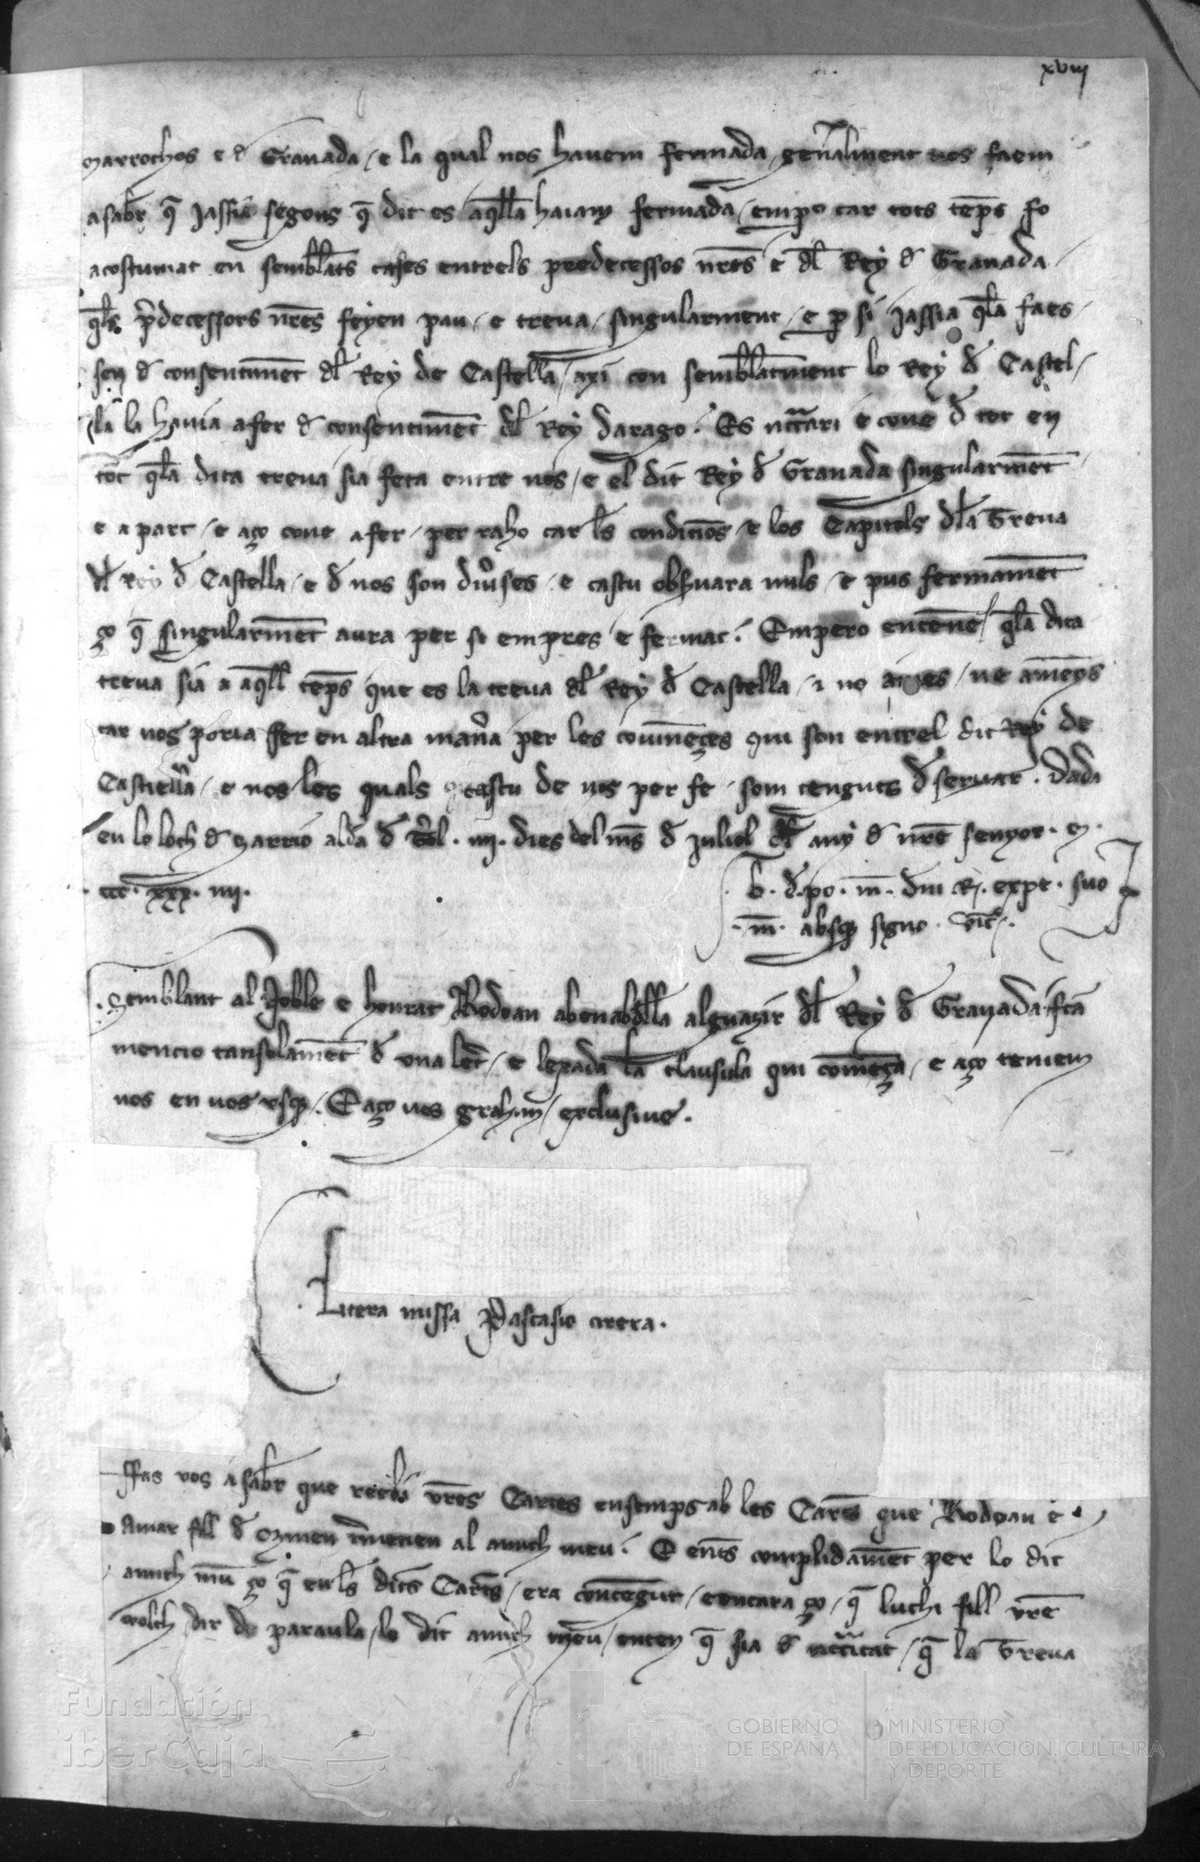 xviii
Marrochos e d Granada / e la qual nos havem fermada / gen̄alment vos faem
asabr q̄ jassia segons q̄ dit es aq̄lla haiam fermada / empo car tots temps fo
acostumat en semblats cases entrels predecessos nr̄es e dl Rey d Granada /
q̄ls p̄decessors nr̄es feyen pau / e treva / singularment / e per si jassia q̄la faes /
sen d consentimēt dl Rey de Castella / axi con semblātment lo Rey d Castel /
la la havia afer d consentimēt dl Rey darago . Es nccāri e cove d tot en
tot q̄la dita treva sia feta entre nos / e el dit Rey d Granada singularmēt
e a part / e aço cove afer / per raho car ls condicios / e los Capitols dla Treva
dl Rey d Castella / e d nos son divses / e cascu obsvara mils / e pus fermamēt
ço q̄ singularmēt aura per si empres e fermat . Empero entene / q̄la dita
treva sia a aq̄ll temps que es la treva dl Rey d Castella / e no / ne āmeys
car nos poria fer en altra man̄a per les covinēçes qui son entrel dit Rey de
Castiella / e nos les quals cascu de nos per fe / som tenguts d servar . Dada
en lo loch d Sarrio aldā d T̄ol . iiii . dies del mēs d juliol dl any d nr̄e senyor . m .
ccc . xxx . iiii .
b . d . po . m . dni R . expr . suo
. m . absq̄ signo . vic̄ .
. Semblant al Noble e honrat Rodoan abenabdlla alguazir dl Rey d Granada fta
mencio tansolamēt d una letr̄ / e lexada la clausula qui comēça / e aço teniem
nos en vos usq̄ . E aço vos grahim / exclusive .
. Litera missa Pascasio cirera .
Ffas vos asabr que reebi vr̄es Cartes ensemps ab les Cartes que Rodoan e
Amar fill d ozmen trameten al amich meu . E entes complidamēt per lo dit
amich meu ço q̄ en ls dites Cartes / era contengut / e encara ço / q̄ luchi fill vr̄e
volch dir de paraula / lo dit amich meu / enten q̄ sia d nccītat / q̄ la Treva
Fundación
iberCaja
GOBIERNO
DE ESPAÑA
MINISTERIO
DE EDUCACIÓN, CULTURA
Y DEPORTE